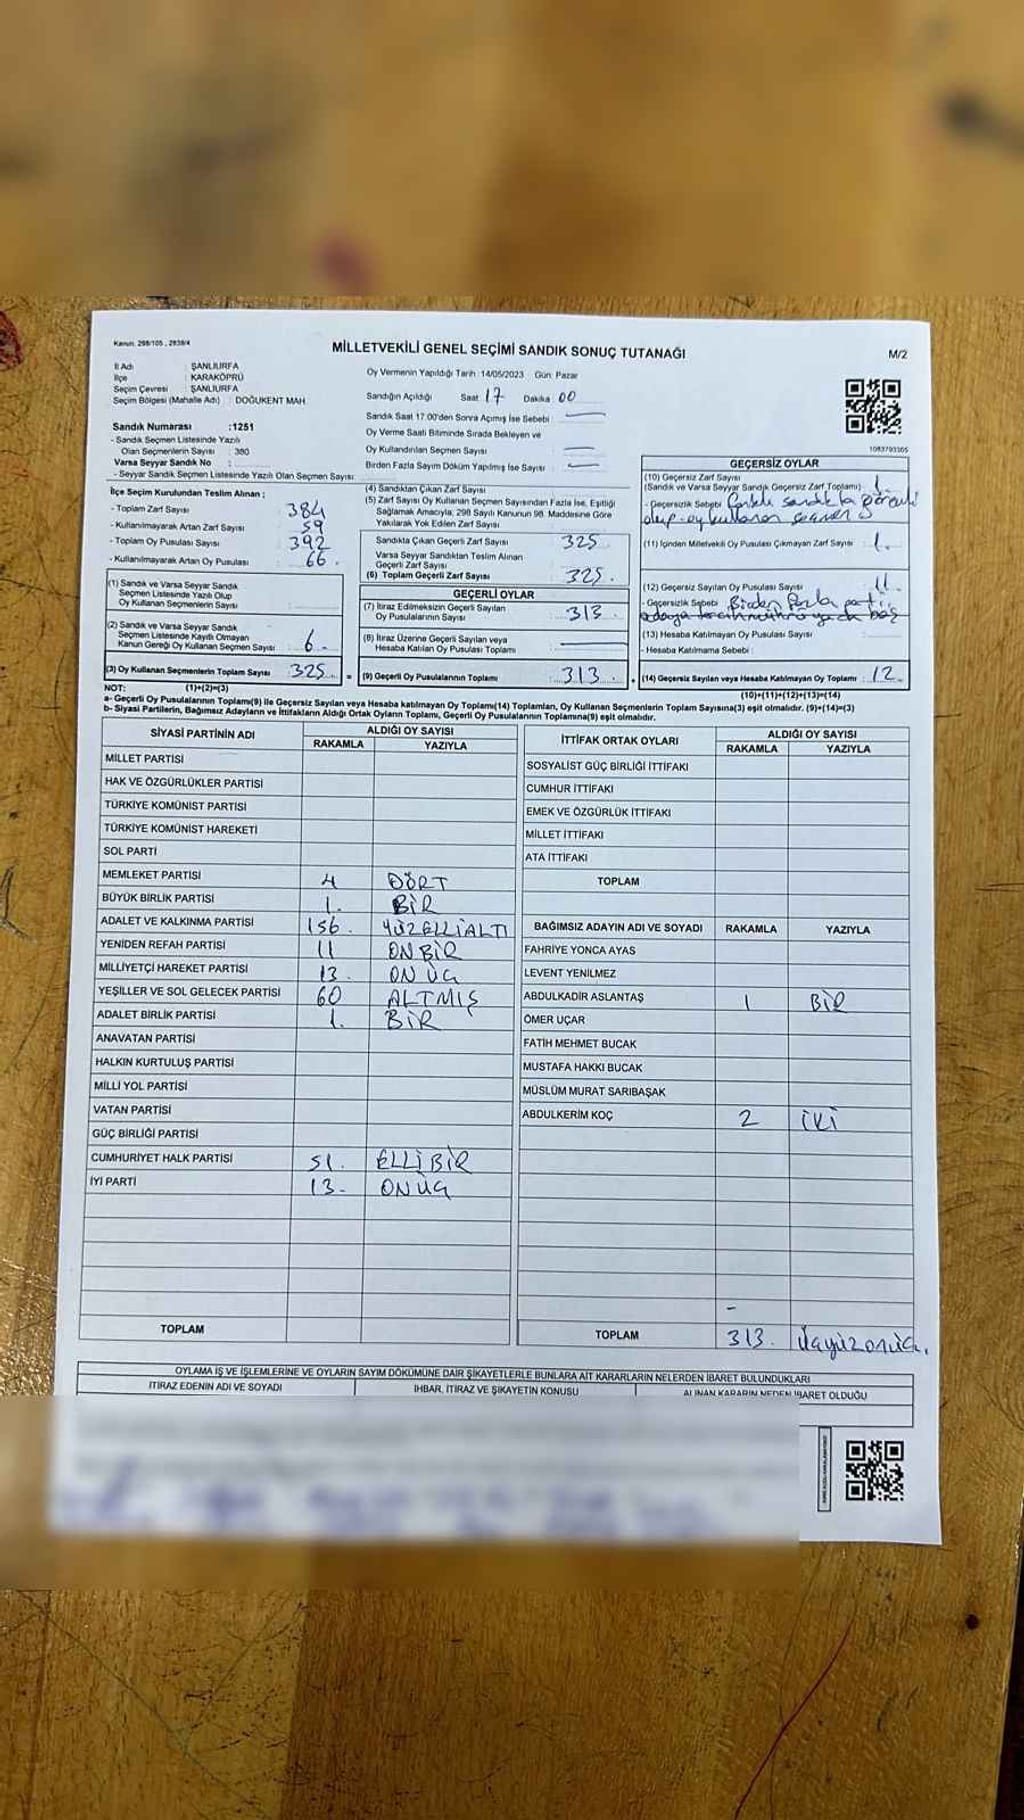 Kanun: 298/105 , 2839/4
MİLLETVEKİLİ GENEL SEÇİMİ SANDIK SONUÇ TUTANAĞI
M/2
İl Adı : ŞANLIURFA
İlçe : KARAKÖPRÜ
Seçim Çevresi : ŞANLIURFA
Seçim Bölgesi (Mahalle Adı) : DOĞUKENT MAH.
Oy Vermenin Yapıldığı Tarih :14/05/2023 Gün: Pazar
Sandığın Açıldığı Saat: 17 Dakika: 00
Sandık Saat 17.00'den Sonra Açımış İse Sebebi :
Oy Verme Saati Bitiminde Sırada Bekleyen ve
Oy Kullandırılan Seçmen Sayısı :
Birden Fazla Sayım Döküm Yapılmış İse Sayısı :
Sandık Numarası :1251
- Sandık Seçmen Listesinde Yazılı
Olan Seçmenlerin Sayısı : 380
Varsa Seyyar Sandık No :
- Seyyar Sandık Seçmen Listesinde Yazılı Olan Seçmen Sayısı:
İlçe Seçim Kurulundan Teslim Alınan ;
- Toplam Zarf Sayısı : 384
- Kullanılmayarak Artan Zarf Sayısı : 59
- Toplam Oy Pusulası Sayısı : 392
- Kullanılmayarak Artan Oy Pusulası : 66.
(1) Sandık ve Varsa Seyyar Sandık
Seçmen Listesinde Yazılı Olup
Oy Kullanan Seçmenlerin Sayısı :
(2) Sandık ve Varsa Seyyar Sandık
Seçmen Listesinde Kayıtlı Olmayan
Kanun Gereği Oy Kullanan Seçmen Sayısı : 6.
(3) Oy Kullanan Seçmenlerin Toplam Sayısı : 325
(4) Sandıktan Çıkan Zarf Sayısı :
(5) Zarf Sayısı Oy Kullanan Seçmen Sayısından Fazla İse, Eşitliği
Sağlamak Amacıyla, 298 Sayılı Kanunun 98. Maddesine Göre
Yakılarak Yok Edilen Zarf Sayısı :
Sandıkta Çıkan Geçerli Zarf Sayısı : 325
Varsa Seyyar Sandıktan Teslim Alınan
Geçerli Zarf Sayısı :
(6) Toplam Geçerli Zarf Sayısı : 325.
GEÇERLİ OYLAR
(7) İtiraz Edilmeksizin Geçerli Sayılan
Oy Pusulalarının Sayısı : 313
(8) İtiraz Üzerine Geçerli Sayılan veya
Hesaba Katılan Oy Pusulası Toplamı :
= (9) Geçerli Oy Pusulalarının Toplamı : 313. +
1083793305
GEÇERSİZ OYLAR
(10) Geçersiz Zarf Sayısı
(Sandık ve Varsa Seyyar Sandık Geçersiz Zarf Toplamı) : 1.
- Geçersizlik Sebebi : Farklı sandıkta görevli
olup oy kullanan seçmen
(11) İçinden Milletvekili Oy Pusulası Çıkmayan Zarf Sayısı : 1.
(12) Geçersiz Sayılan Oy Pusulası Sayısı : 11
- Geçersizlik Sebebi : Birden fazla parti
(13) Hesaba Katılmayan Oy Pusulası Sayısı :
- Hesaba Katılmama Sebebi :
(14) Geçersiz Sayılan veya Hesaba Katılmayan Oy Toplamı : 12.
NOT: (1)+(2)=(3)
(10)+(11)+(12)+(13)=(14)
a- Geçerli Oy Pusulalarının Toplamı(9) ile Geçersiz Sayılan veya Hesaba katılmayan Oy Toplamı(14) Toplamları, Oy Kullanan Seçmenlerin Toplam Sayısına(3) eşit olmalıdır. (9)+(14)=(3)
b- Siyasi Partilerin, Bağımsız Adayların ve İttifakların Aldığı Ortak Oyların Toplamı, Geçerli Oy Pusulalarının Toplamına(9) eşit olmalıdır.
SİYASİ PARTİNİN ADI ALDIĞI OY SAYISI
RAKAMLA YAZIYLA
MİLLET PARTİSİ
HAK VE ÖZGÜRLÜKLER PARTİSİ
TÜRKİYE KOMÜNİST PARTİSİ
TÜRKİYE KOMÜNİST HAREKETİ
SOL PARTİ
MEMLEKET PARTİSİ 4 DÖRT
BÜYÜK BİRLİK PARTİSİ 1. BİR
ADALET VE KALKINMA PARTİSİ 156. YÜZELLİALTI
YENİDEN REFAH PARTİSİ 11 ONBİR
MİLLİYETÇİ HAREKET PARTİSİ 13. ONÜÇ
YEŞİLLER VE SOL GELECEK PARTİSİ 60 ALTMIŞ
ADALET BİRLİK PARTİSİ 1. BİR
ANAVATAN PARTİSİ
HALKIN KURTULUŞ PARTİSİ
MİLLİ YOL PARTİSİ
VATAN PARTİSİ
GÜÇ BİRLİĞİ PARTİSİ
CUMHURİYET HALK PARTİSİ 51. ELLİBİR
İYİ PARTİ 13- ONÜÇ
TOPLAM
İTTİFAK ORTAK OYLARI ALDIĞI OY SAYISI
RAKAMLA YAZIYLA
SOSYALİST GÜÇ BİRLİĞİ İTTİFAKI
CUMHUR İTTİFAKI
EMEK VE ÖZGÜRLÜK İTTİFAKI
MİLLET İTTİFAKI
ATA İTTİFAKI
TOPLAM
BAĞIMSIZ ADAYIN ADI VE SOYADI RAKAMLA YAZIYLA
FAHRİYE YONCA AYAS
LEVENT YENİLMEZ
ABDULKADİR ASLANTAŞ 1 BİR
ÖMER UÇAR
FATİH MEHMET BUCAK
MUSTAFA HAKKI BUCAK
MÜSLÜM MURAT SARIBAŞAK
ABDULKERİM KOÇ 2 İKİ
-
TOPLAM 313. Üçyüzonüç.
OYLAMA İŞ VE İŞLEMLERİNE VE OYLARIN SAYIM DÖKÜMÜNE DAİR ŞİKAYETLERLE BUNLARA AİT KARARLARIN NELERDEN İBARET BULUNDUKLARI
İTİRAZ EDENİN ADI VE SOYADI İHBAR, İTİRAZ VE ŞİKAYETİN KONUSU ALINAN KARARIN NEDEN İBARET OLDUĞU